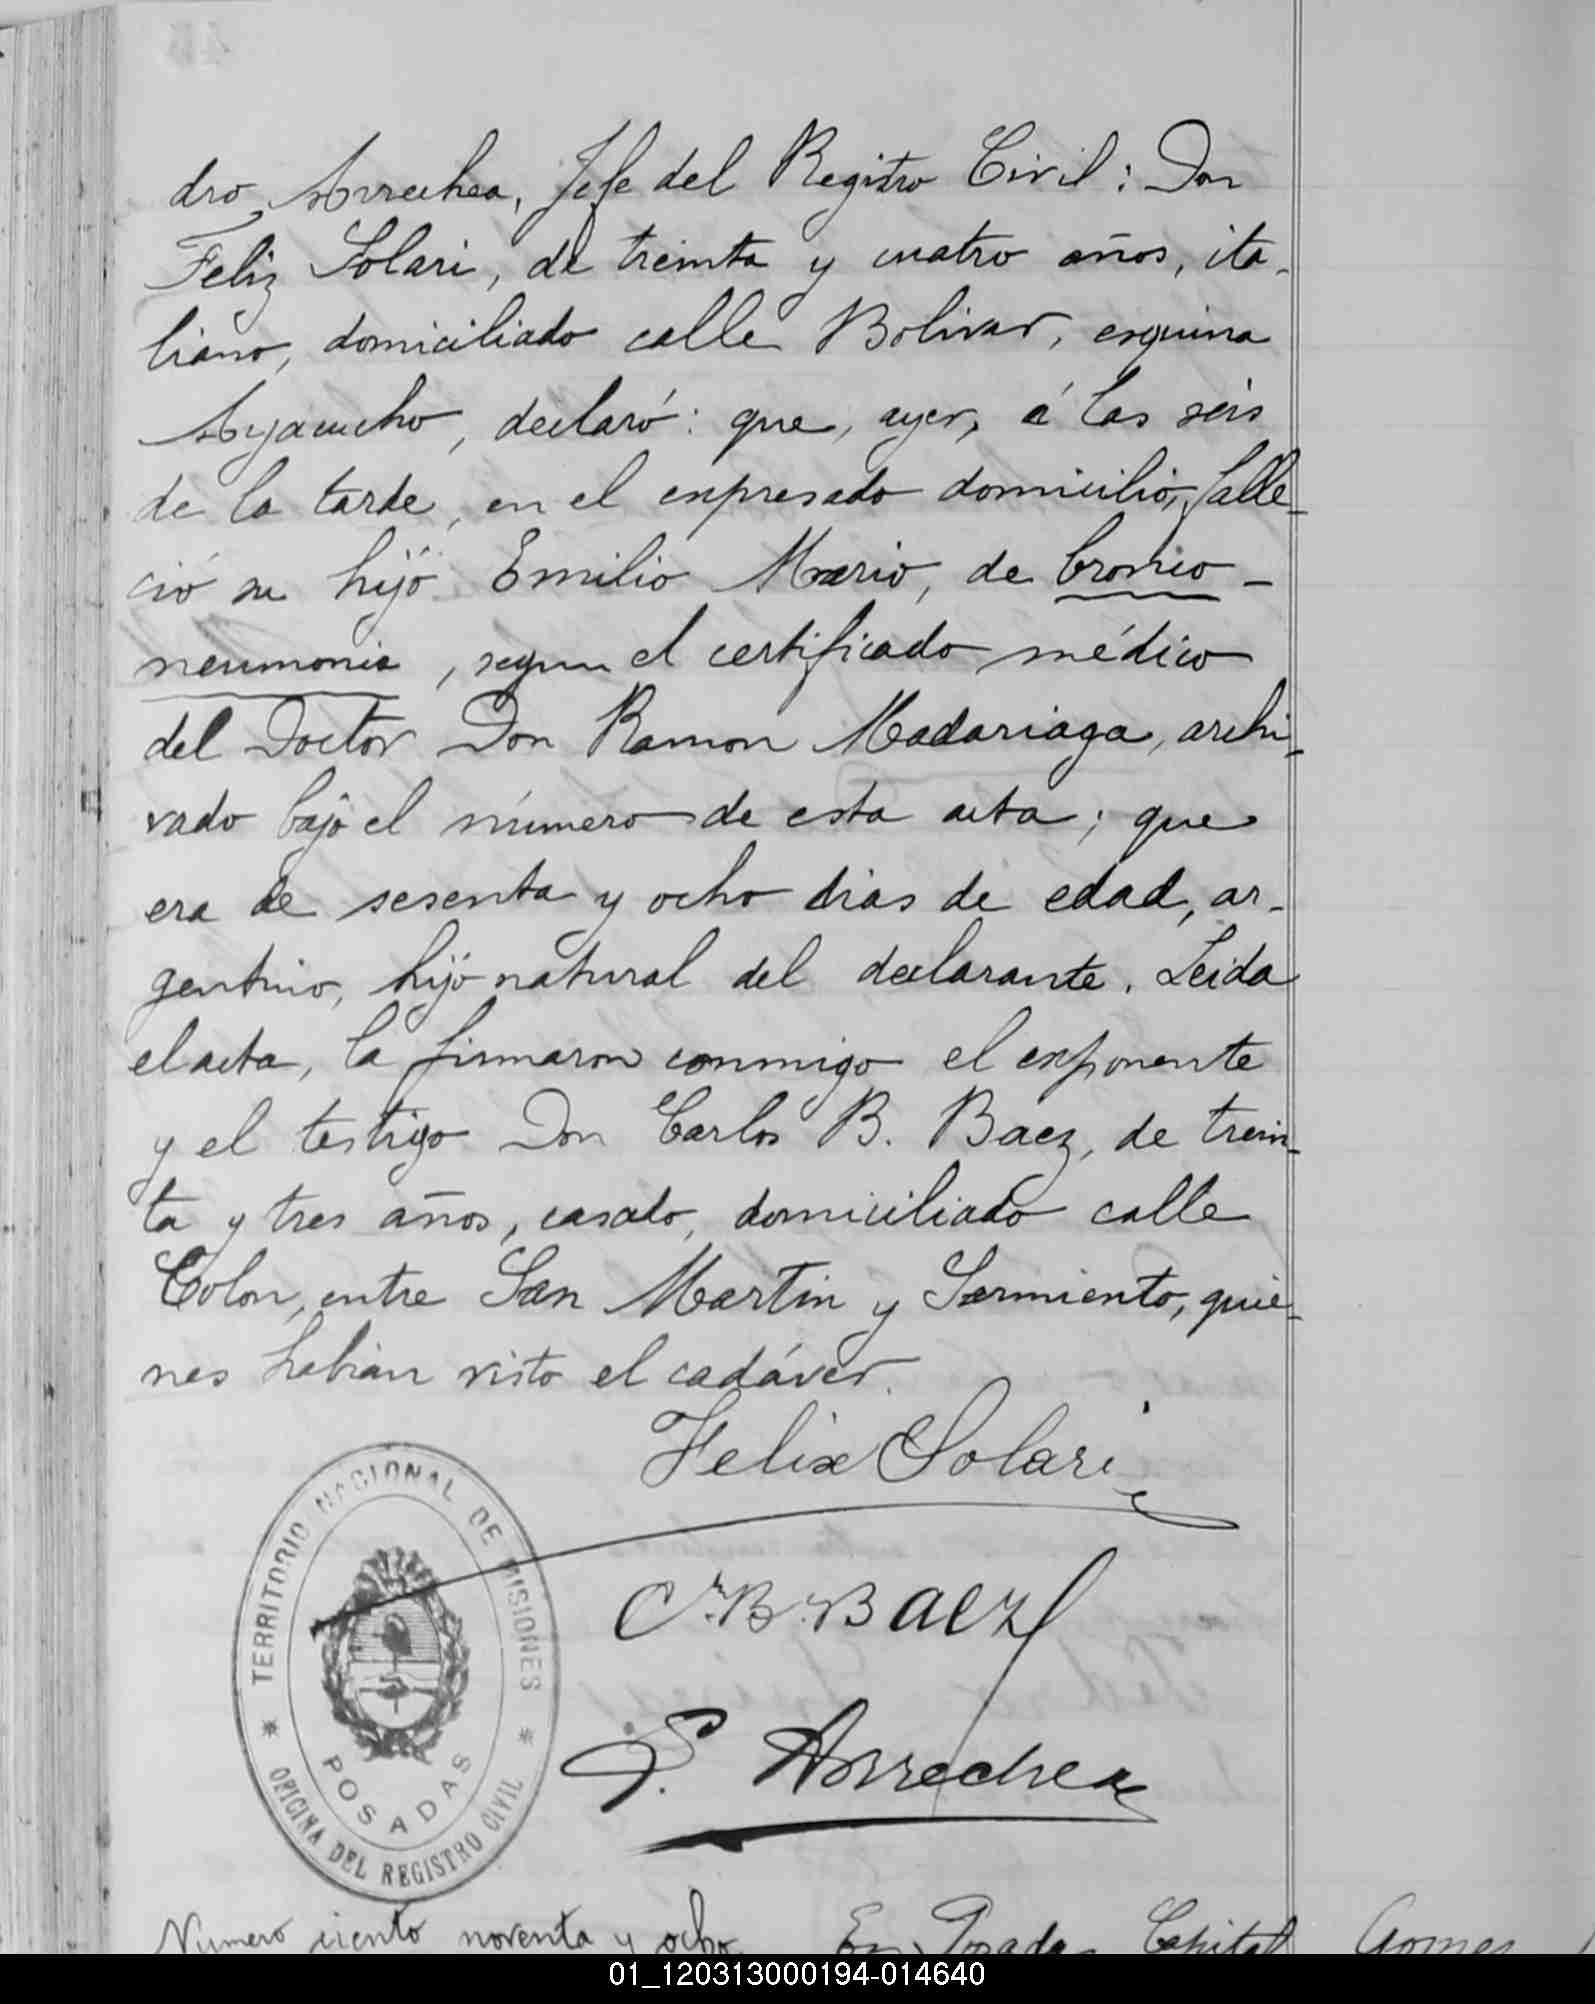 dro Arrechea, Jefe del Registro Civil: Don
Feliz Solari, de treinta y cuatro años, ita-
liano, domiciliado calle Bolivar, esquina
Ayacucho, declaró: que, ayer, á las seis
de la tarde, en el expresado domicilio, falle-
ció su hijo Emilio Mario, de bronco-
neumonia, segun el certificado médico
del Doctor Don Ramon Madariaga, archi-
vado bajo el número de esta acta; que
era de sesenta y ocho dias de edad, ar-
gentino, hijo natural del declarante. Leida
el acta, la firmaron conmigo el exponente
y el testigo Don Carlos B. Baez, de trein-
ta y tres años, casado, domiciliado calle
Colon, entre San Martin y Sarmiento, quie-
nes habian visto el cadáver.
Felix Solari
C. B. Baez
P. Arrechea
TERRITORIO NACIONAL DE MISIONES
POSADAS
OFICINA DEL REGISTRO CIVIL
Numero ciento noventa y ocho En Posadas Capital Gomez
01_120313000194-014640